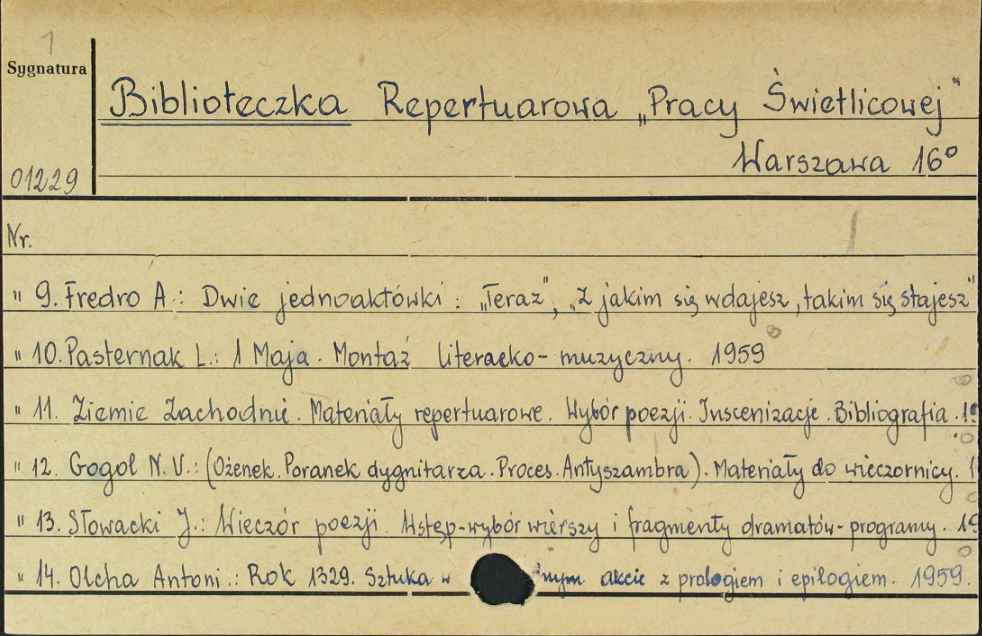 1
Sygnatura
Biblioteczka Repertuarowa „Pracy Świetlicowej"
Warszawa 16°
01229
Nr.
" 9. Fredro A.: Dwie jednoaktówki: „Teraz", „Z jakim się wdajesz, takim się stajesz"
" 10. Pasternak L.: 1 Maja. Montaż literacko-muzyczny. 1959
" 11. Ziemie Zachodnie. Materiały repertuarowe. Wybór poezji. Inscenizacje. Bibliografia. 19
" 12. Gogol N.V.: (Ożenek. Poranek dygnitarza. Proces. Antyszambra). Materiały do wieczornicy. 1
" 13. Słowacki J.: Wieczór poezji. Wstęp-wybór wierszy i fragmenty dramatów-programy. 19
" 14. Olcha Antoni.: Rok 1329. Sztuka w akcie z prologiem i epilogiem. 1959.